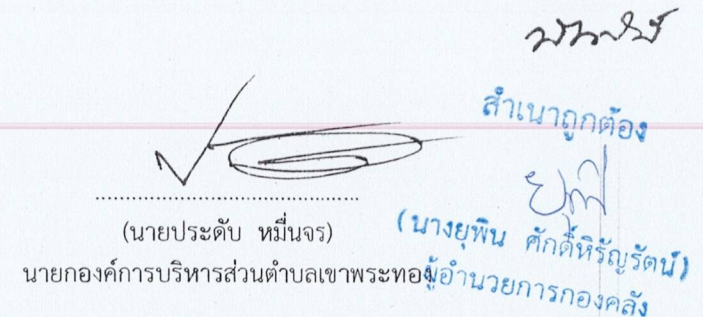 สำเนาถูกต้อง
(นายประดับ หมื่นจร)
นายกองค์การบริหารส่วนตำบลเขาพระทอง
(นางยุพิน ศักดิ์หิรัญรัตน์)
ผู้อำนวยการกองคลัง